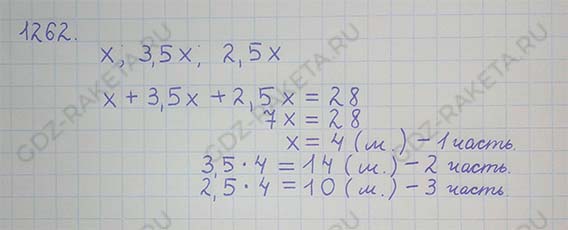 1262.
x; 3,5x; 2,5x
x + 3,5x + 2,5x = 28
7x = 28
x = 4 (м.) – 1 часть.
3,5 · 4 = 14 (м.) – 2 часть.
2,5 · 4 = 10 (м.) – 3 часть.
GDZ-RAKETA.RU
GDZ-RAKETA.RU
GDZ-RAKETA.RU
GDZ-RAKETA.RU